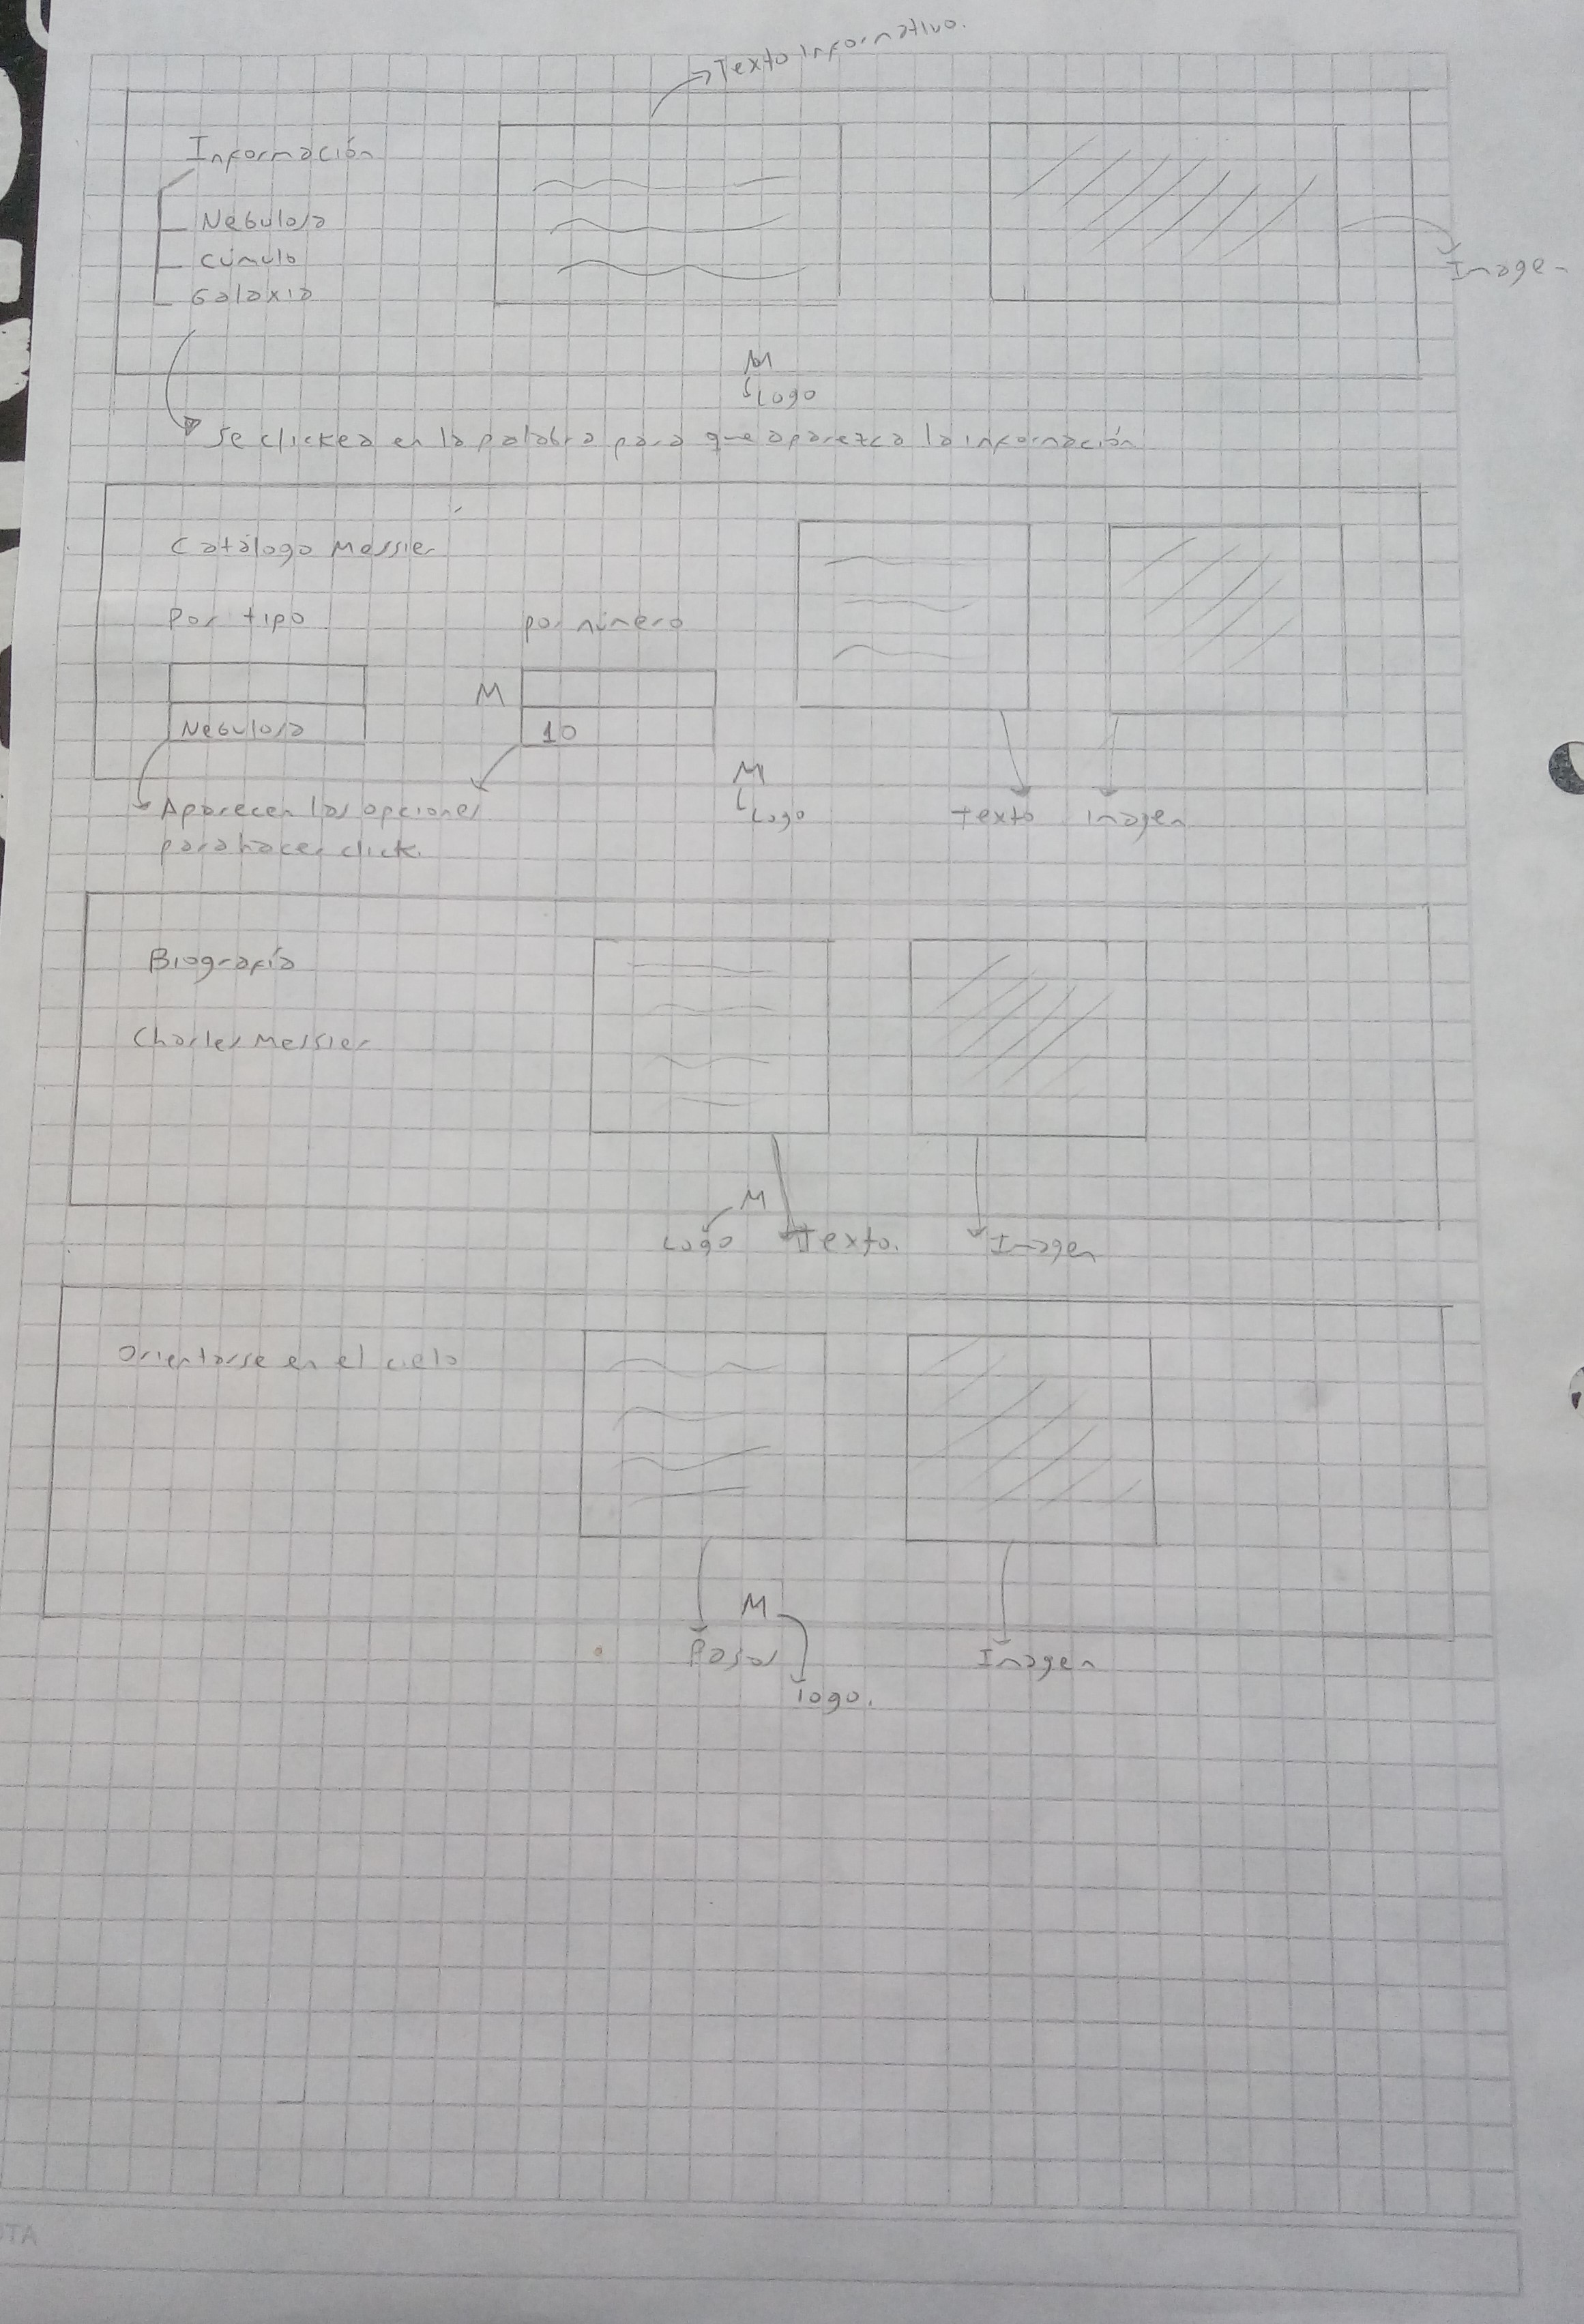 Texto informativo.
Información
Nebulosa
Cúmulo
Galaxia
Imagen
M
Logo
Se clickea en la palabra para que aparezca la información
Catálogo Messier
Por tipo
por número
M
Nebulosa
10
M
Logo
Aparecen las opciones
para hacer click.
Texto
Imagen
Biografía
Charles Messier
M
Logo
Texto.
Imagen
Orientarse en el cielo
M
Pasos
Imagen
logo.
OTA